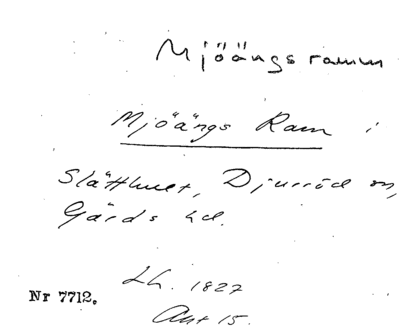 Mjöängsramm
Mjöängs Ram i
Slätthult, Djurröd sn,
Gärds hd.
Lh. 1827
Nr 7712.
Akt 15.